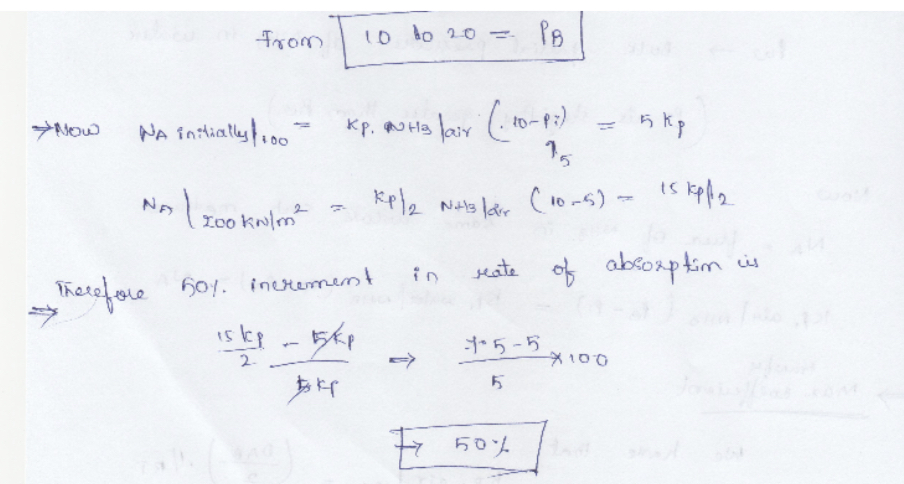 From 10 to 20 = PB
→ Now NA initially/100 = Kp. NH3/air (10-Pi) = 5 Kp
↑5
NA | 200 KN/m² = Kp/2 NH3/air (10-5) = 15 Kp/2
⇒ Therefore 50%. increment in rate of absorption is
15 Kp/2 - 5Kp / 5Kp ⇒ 7.5-5 / 5 ×100
→ 50%